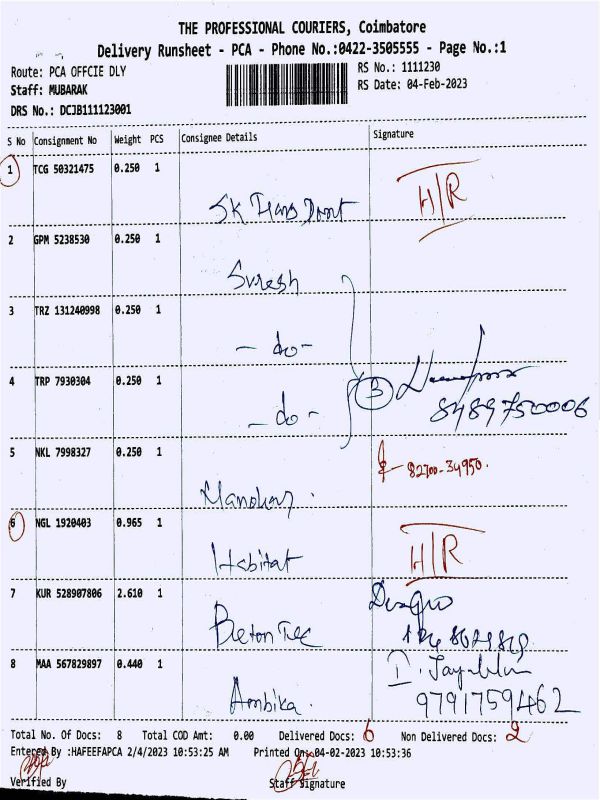 THE PROFESSIONAL COURIERS, Coimbatore
Delivery Runsheet - PCA - Phone No.:0422-3505555 - Page No.:1
Route: PCA OFFCIE DLY
RS No.: 1111230
Staff: MUBARAK
RS Date: 04-Feb-2023
DRS No.: DCJB111123001
S No Consignment No Weight PCS Consignee Details Signature
1 TCG 50321475 0.250 1
H/R
SK Trans Port
2 GPM 5238530 0.250 1
Suresh
3 TRZ 131240998 0.250 1
- do -
4 TRP 7930304 0.250 1
3
8489750006
- do -
5 NKL 7998327 0.250 1
82700-34950.
Manohar.
6 NGL 1920403 0.965 1
Habitat H/R
7 KUR 528907806 2.610 1
Beton Tec
8 MAA 567829897 0.440 1
Ambika. 9791759462
Total No. Of Docs: 8 Total COD Amt: 0.00 Delivered Docs: 6 Non Delivered Docs: 2
Entered By :HAFEEFAPCA 2/4/2023 10:53:25 AM Printed On: 04-02-2023 10:53:36
Verified By Staff Signature